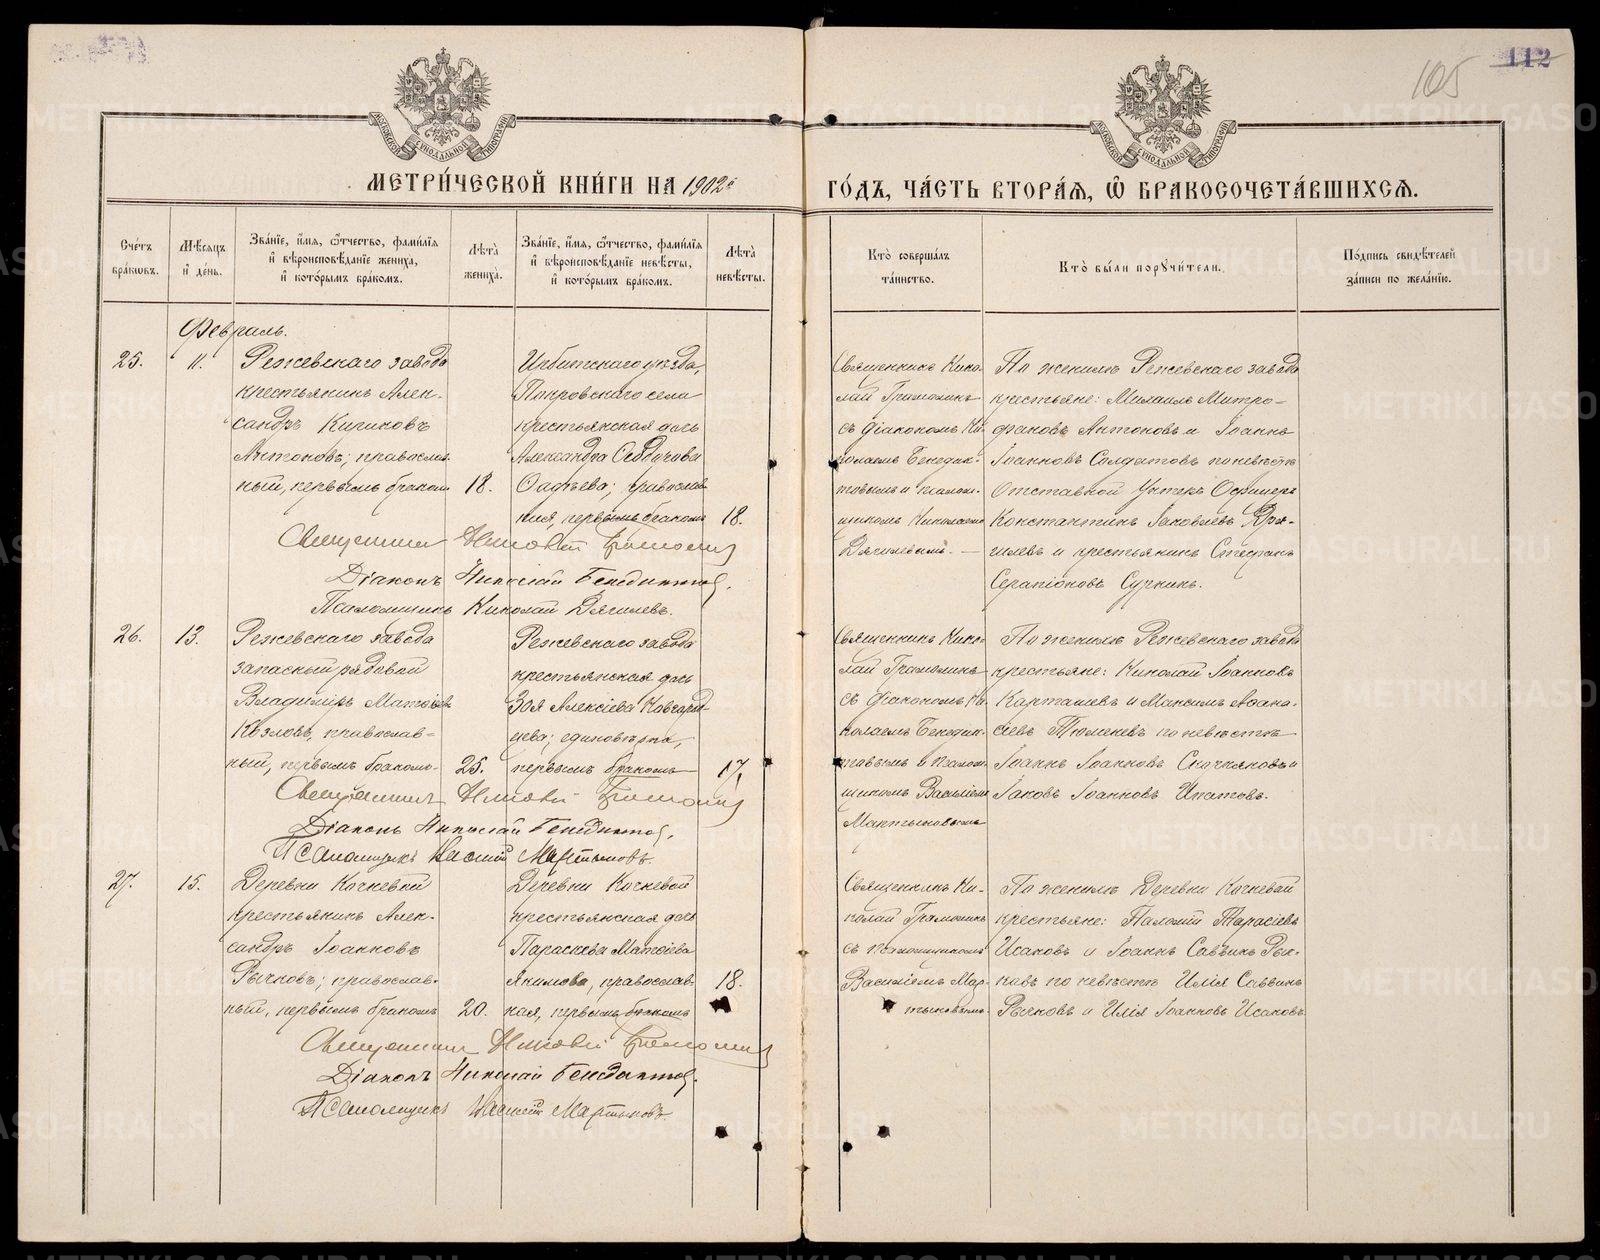 112
105
МЕТРИ́ЧЕСКОЙ КНИ́ГИ НА 1902й ГО́ДЪ, ЧА́СТЬ ВТОРА́Я, Ѽ БРАКОСОЧЕТА́ВШИХСЯ.
Сче́тъ бра́ковъ.
Мѣ́сяцъ и҆ де́нь.
Зва́нїе, и҆́мя, ѻ҆́тчество, фами́лїя и҆ вѣроисповѣ́данїе жениха̀, и҆ кото́рымъ бра́комъ.
Лѣ́та жениха̀.
Зва́нїе, и҆́мя, ѻ҆́тчество, фами́лїя и҆ вѣроисповѣ́данїе невѣ́сты, и҆ кото́рымъ бра́комъ.
Лѣ́та невѣ́сты.
Кто̀ соверша́лъ та́инство.
Кто̀ бы́ли порꙋчи́тели.
По́дпись свидѣ́телей за́писи по жела́нїю.
Февраль.
25.
11.
Режевскаго завода
крестьянинъ Алек-
сандръ
Антоновъ; православ-
ный, первымъ бракомъ
18.
Ирбитскаго уѣзда,
Покровскаго села
крестьянская дочь
Александра
Фадѣева; православ-
ная, первымъ бракомъ
18.
Священникъ Нико-
лай Грамолинъ
съ діакономъ Ни-
колаемъ Бенедик-
товымъ и псалом-
щикомъ Николаемъ
Дягилевымъ.
По женихѣ Режевскаго завода
крестьяне: Михаилъ Митро-
фановъ Антоновъ и Іоаннъ
Іоанновъ Солдатовъ по невѣстѣ
Отставной Унтеръ Офицеръ
Константинъ Іаковлевъ
и крестьянинъ Стефанъ
Серапіоновъ
Священникъ Николай Грамолинъ
Діаконъ Николай Бенедиктов.
Псаломщикъ Николай Дягилевъ.
26.
13.
Режевскаго завода
запасный рядовой
Владиміръ Матѳіевъ
Козловъ, православ-
ный, первымъ бракомъ
25.
Режевскаго завода
крестьянская дочь
Зоя Алексіева
единовѣрка,
первымъ бракомъ
17.
Священникъ Нико-
лай Грамолинъ
съ діакономъ Ни-
колаемъ Бенедик-
товымъ и псалом-
щикомъ Василіемъ
Мартыновымъ
По женихѣ Режевскаго завода
крестьяне: Николай Іоанновъ
Карташевъ и Максимъ Аѳана-
сіевъ Тюменевъ по невѣстѣ
Іоаннъ Іоанновъ и
Іаковъ Іоанновъ Ипатовъ.
Священникъ Николай Грамолинъ
Діаконъ Николай Бенедиктов.
Псаломщикъ Василій Мартыновъ.
27.
15.
Деревни Кочневой
крестьянинъ Алек-
сандръ Іоанновъ
Рычковъ; православ-
ный, первымъ бракомъ
20.
Деревни Кочневой
крестьянская дочь
Параскева Матѳіева
Якимова, православ-
ная, первымъ бракомъ
18.
Священникъ Ни-
колай Грамолинъ
съ псаломщикомъ
Василіемъ Мар-
тыновымъ.
По женихѣ Деревни Кочневой
крестьяне: Тарасіевъ
Исаковъ и Іоаннъ Саввинъ Рыч-
ковъ по невѣстѣ Илія Саввинъ
Рычковъ и Илія Іоанновъ Исаковъ.
Священникъ Николай Грамолинъ
Діаконъ Николай Бенедиктов.
Псаломщикъ Василій Мартыновъ.
METRIKI.GASO-URAL.RU